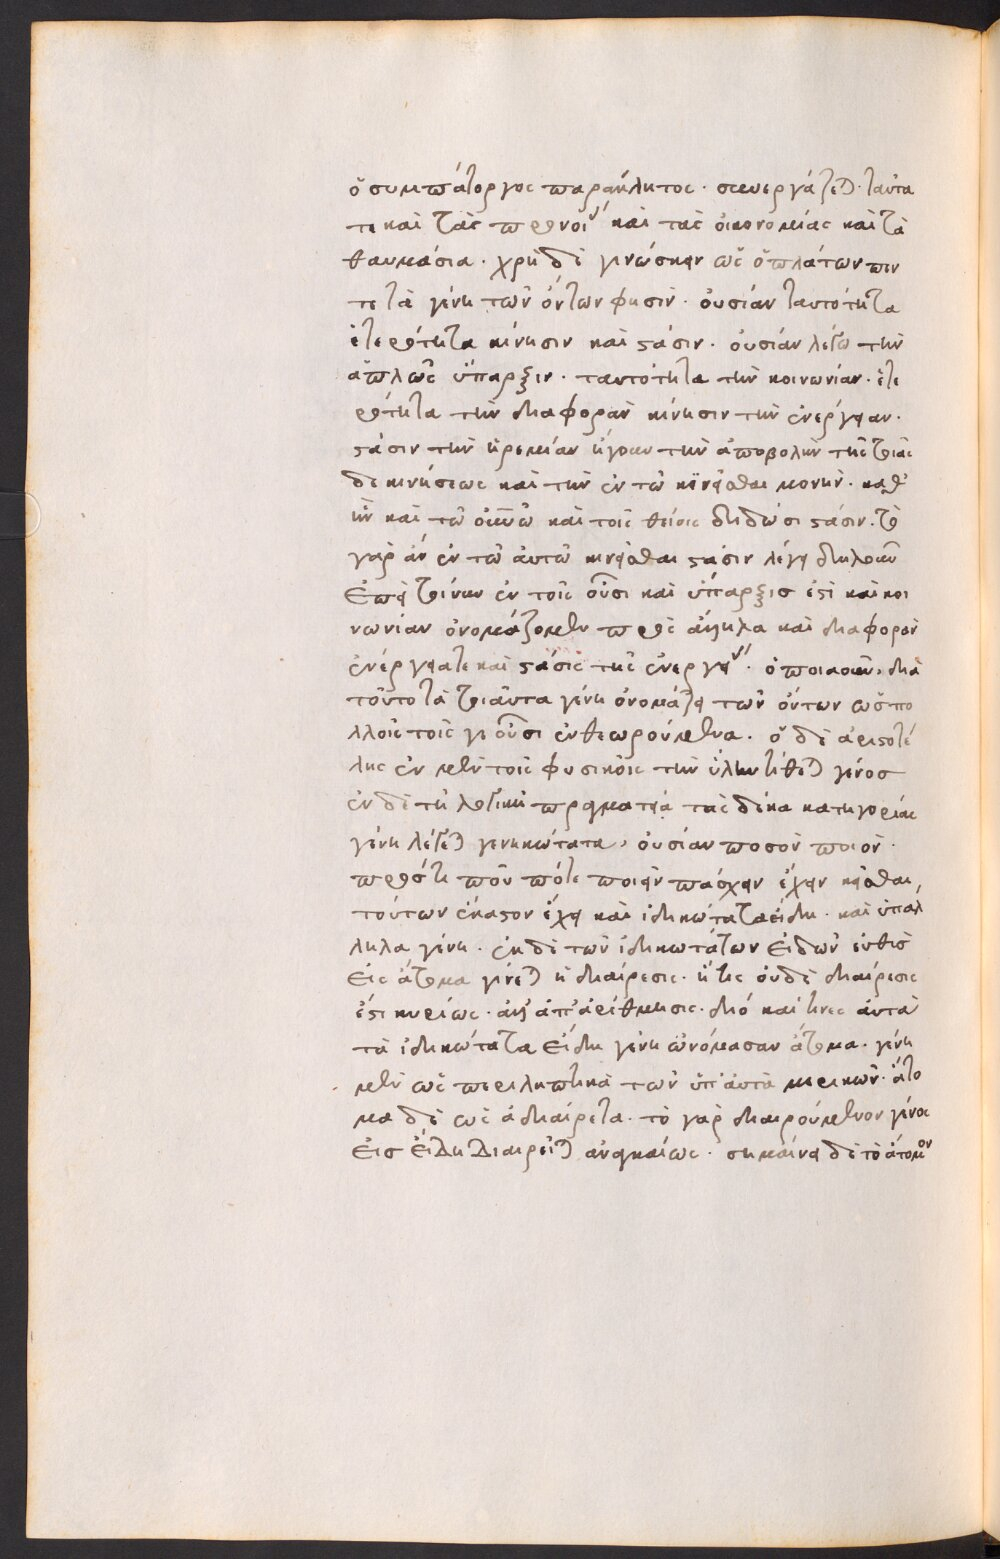 ὁ συμπάτοργος παράκλητος · συνεργάζεται · ταῦτα
τε καὶ τὰς προνοί καὶ τὰς οἰκονομίας καὶ τὰ
θαυμάσια · χρὴ δὲ γινώσκειν ὡς ὁ πλάτων πεν
τε τὰ γένη τῶν ὄντων φησὶν · οὐσίαν ταυτότητα
ἑτερότητα κίνησιν καὶ στάσιν · οὐσίαν λέγω τὴν
ἁπλῶς ὕπαρξιν · ταυτότητα τὴν κοινωνίαν · ἑτε
ρότητα τὴν διαφορὰν κίνησιν τὴν ἐνέργειαν ·
στάσιν τὴν ἠρεμίαν ἤγουν τὴν ἀποβολὴν τῆς τοιᾶς
δε κινήσεως καὶ τὴν ἐν τῶ κινεῖσθαι μονὴν · καθ'
ἣν καὶ τῶ οὐνῶ καὶ τοῖς θείοις διδώσι στάσιν · τὸ
γὰρ ἀν ἐν τῶ αὐτῶ κινεῖσθαι στάσιν λέγει δηλοῦν
Ἐπεὶ τοίνυν ἐν τοῖς οὖσι καὶ ὕπαρξις ἐστὶ καὶ κοι
νωνίαν ὀνομάζομεν πρὸς ἄλληλα καὶ διαφορὰν
ἐνέργειατε καὶ στάσις τῆς ἐνεργεί · ὁποιαοῦν, διὰ
τοῦτο τὰ τοιαῦτα γένη ὀνομάζει τῶν ὄντων ὡς πο
λλοῖς τοῖς γε οὖσι ἐνθεωρούμενα · ὁ δὲ ἀριστοτέ
λης ἐν μὲν τοῖς φυσικοῖς τὴν ὕλην τίθεται γένος
ἐν δὲ τῆ λογικῆ πραγματεία τὰς δέκα κατηγορίας
γένη λέγεται γενικώτατα, οὐσίαν ποσὸν ποιὸν ·
πρόστι ποῦ πότε ποιεῖν πάσχειν ἔχειν κεῖσθαι,
τούτων ἕκαστον ἔχει καὶ ἰδικώτατα εἴδη · καὶ ὑπαλ
ληλα γένη · ἐκ δὲ τῶν ἰδικωτάτων εἰδῶν εὐθὺς
Εἰς ἄτομα γίνεται ἡ διαίρεσις · ἥτις οὐδὲ διαίρεσις
ἔστι κυρίως · ἀλλ' ἀπαρίθμησις · διό καί τινες αὐτὰ
τὰ ἰδικώτατα Εἴδη γένη ὠνόμασαν ἄτομα · γένη
μὲν ὡς περιληπτικὰ τῶν ὑπ' αὐτὰ μερικῶν · ἄτο
μα δὲ ὡς ἀδιαίρετα · τὸ γὰρ διαιρούμενον γένος
Εἰς εἴδη διαιρεῖται ἀναγκαίως · σημαίνει δὲ τὸ ἄτομον